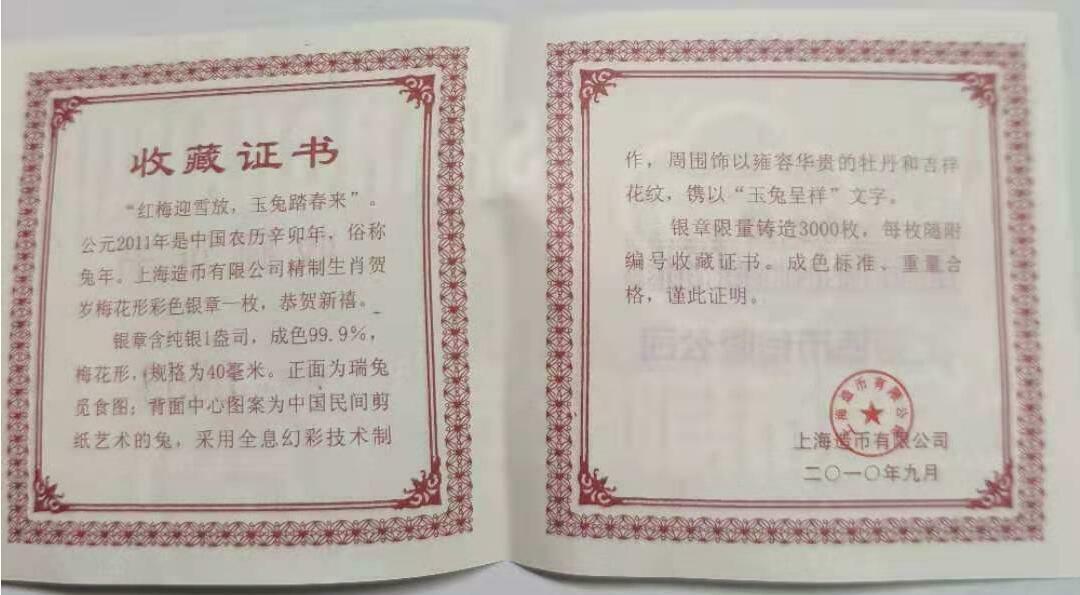 收藏证书
“红梅迎雪放，玉兔踏春来”。
公元2011年是中国农历辛卯年，俗称
兔年。上海造币有限公司精制生肖贺
岁梅花形彩色银章一枚，恭贺新禧。
银章含纯银1盎司，成色99.9%，
梅花形，规格为40毫米。正面为瑞兔
觅食图；背面中心图案为中国民间剪
纸艺术的兔，采用全息幻彩技术制
作，周围饰以雍容华贵的牡丹和吉祥
花纹，镌以“玉兔呈祥”文字。
银章限量铸造3000枚，每枚随附
编号收藏证书。成色标准、重量合
格，谨此证明。
上海造币有限公司
上海造币有限公司
二〇一〇年九月